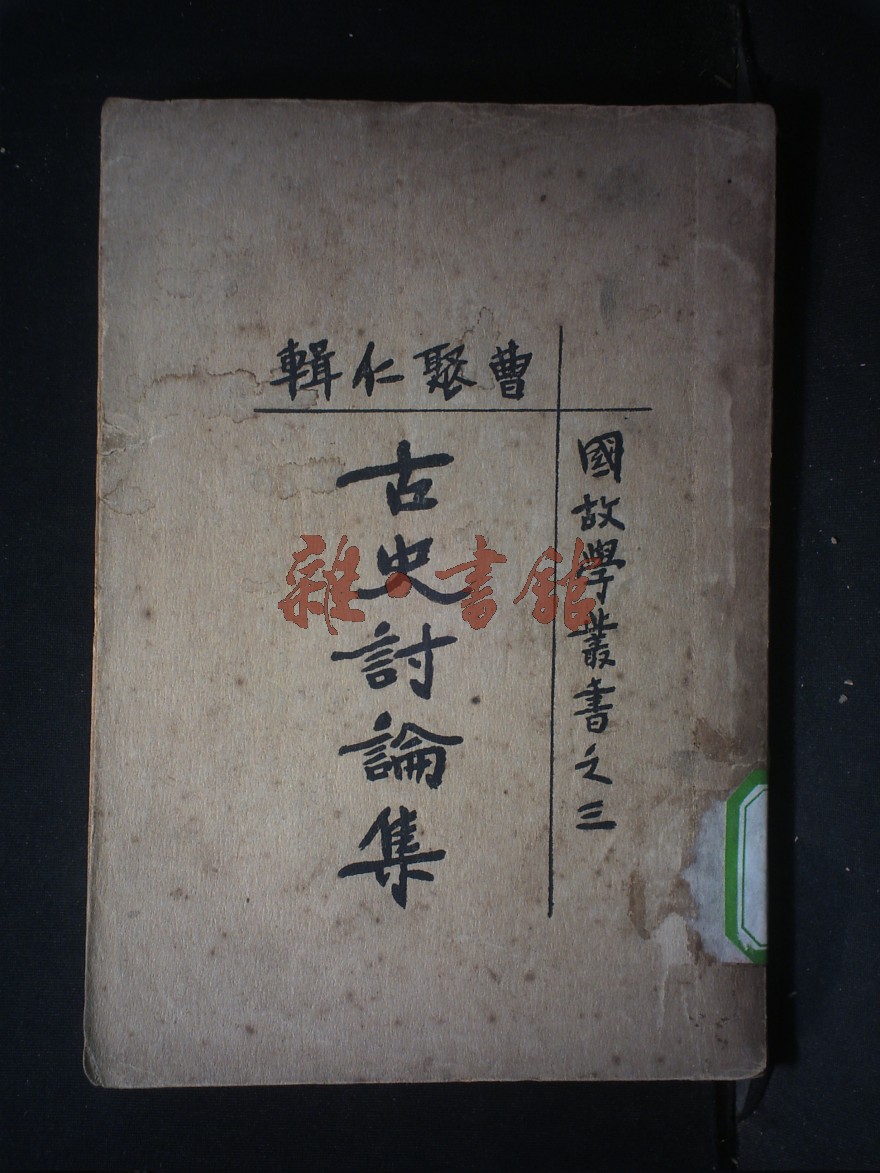 曹聚仁輯
國故學叢書之三
古史討論集
雜·書館